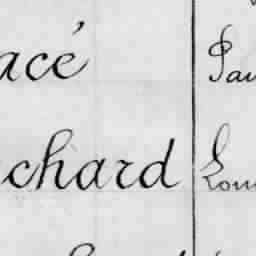 acé Pau
chard Lou